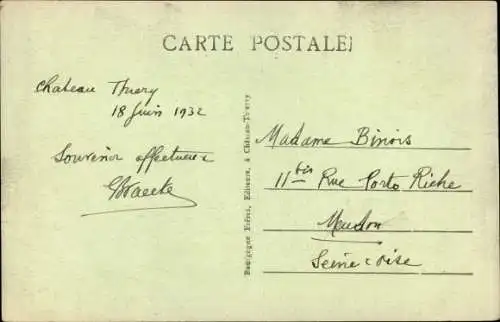 CARTE POSTALE
Chateau Thierry
18 Juin 1932
Souvenir affectueux
Bourgogne Frères, Editeurs, à Château-Thierry
Madame Binois
11 bis Rue Porto Riche
Meudon
Seine & Oise